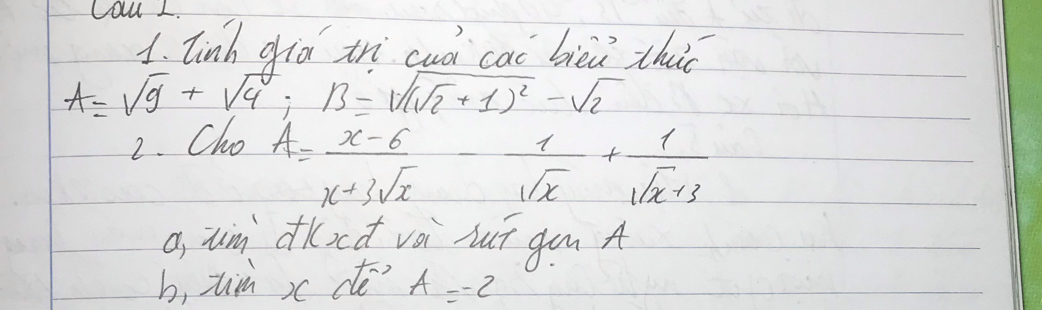 Câu 1.
1. Tính giá trị của các biểu thức
A = √9 + √4 ; B = √(√2 + 1)² - √2
2. Cho A = (x - 6)/(x + 3√x) - 1/√x + 1/(√x + 3)
a, tìm đkxđ và rút gọn A
b, tìm x để A = -2